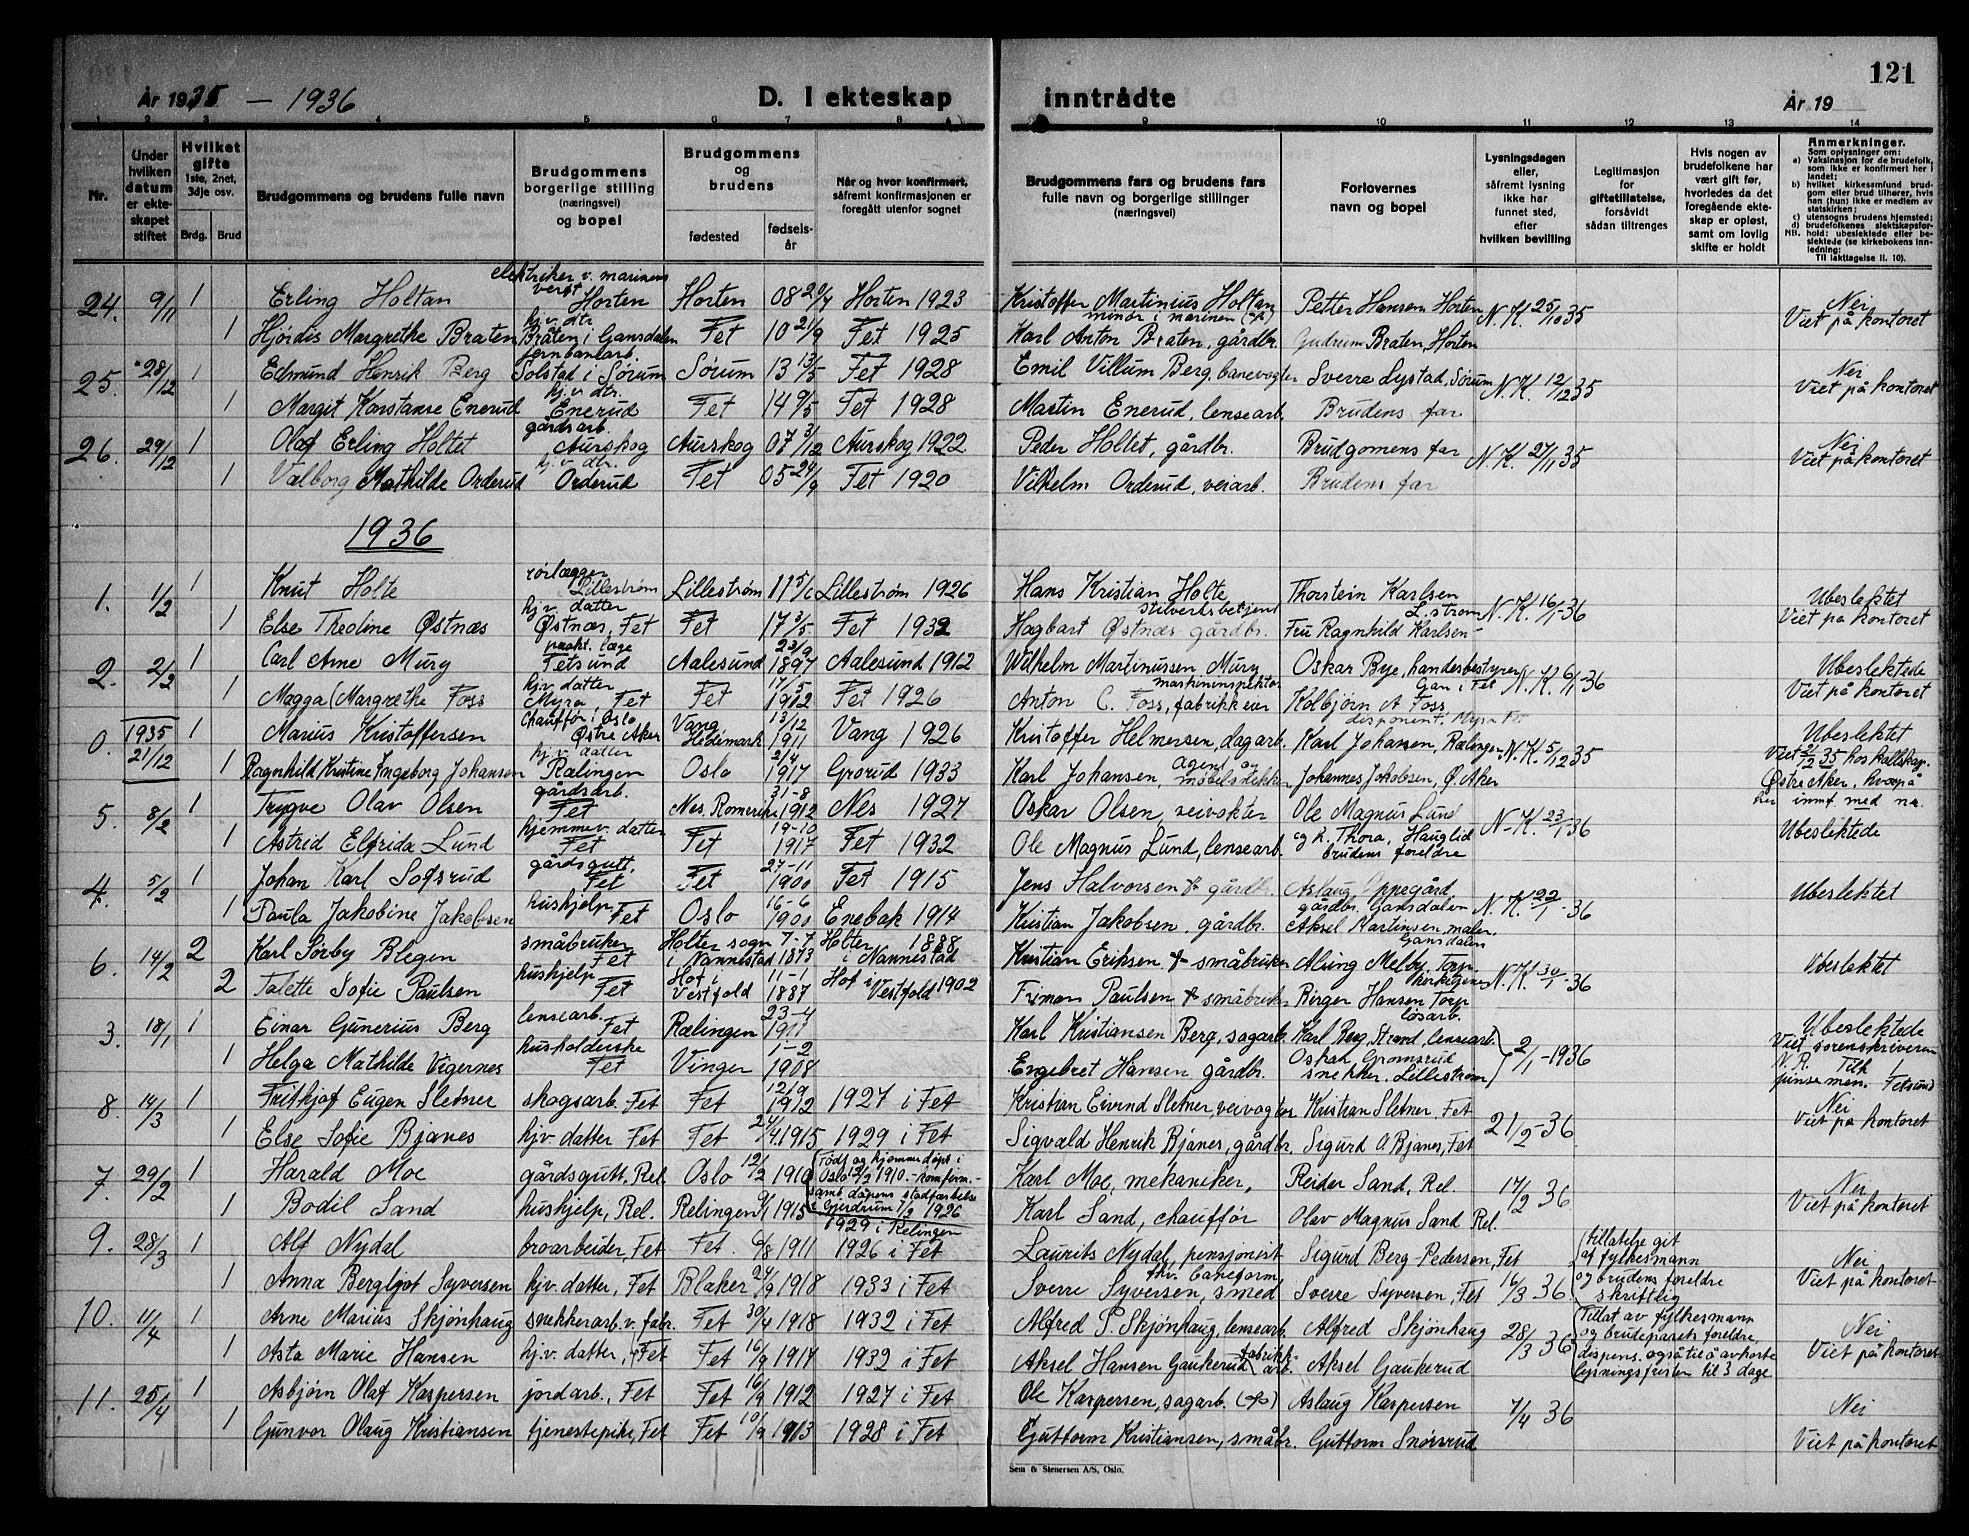 121
År 1935 – 1936 D. I ekteskap inntrådte År 19
1 2 3 4 5 6 7 8 9 10 11 12 13 14
Nr. Under hvilken datum er ekteskapet stiftet
Hvilket gifte 1ste, 2net, 3dje osv. Brdg. Brud
Brudgommens og brudens fulle navn
Brudgommens borgerlige stilling (næringsvei) og bopel
Brudgommens og brudens fødested fødselsår
Når og hvor konfirmert, såfremt konfirmasjonen er foregått utenfor sognet
Brudgommens fars og brudens fars fulle navn og borgerlige stillinger (næringsvei)
Forlovernes navn og bopel
Lysningsdagen eller, såfremt lysning ikke har funnet sted, efter hvilken bevilling
Legitimasjon for giftetillatelse, forsåvidt sådan tiltrenges
Hvis nogen av brudefolkene har vært gift før, hvorledes da det foregående ekteskap er opløst, samt om lovlig skifte er holdt
Anmerkninger.
Som oplysninger om:
a) Vaksinasjon for de brudefolk, som ikke er konfirmert her i landet;
b) hvilket kirkesamfund brudgom eller brud tilhører, hvis han (hun) ikke er medlem av statskirken;
c) utensogns brudens hjemsted;
d) brudefolkenes slektskapsforhold: ubeslektede eller beslektede (se kirkebokens innledning:
NB. Til iakttagelse II. 10).
24. 9/11 1 Erling Holtan elektriker v. marinens verft Horten Horten 08 20/4 Horten 1923 Kristoffer Martinius Holtan minør i marinen (+) Petter Hansen Horten N.K. 25/10 35 Nei Viet på kontoret
1 Hjørdis Margrethe Braten hj.v. dtr. Braten i Gansdalen Fet 10 21/9 Fet 1925 Karl Anton Braten, gårdbr. Gudrun Braten, Horten
25. 28/12 1 Edmund Henrik Berg jernbanearb. Solstad i Sørum Sørum 13 13/5 Fet 1928 Emil Villum Berg, banevogter Sverre Lystad, Sørum N.K. 12/12 35 Nei Viet på kontoret
1 Margit Konstanse Enerud hj.v. dtr. Enerud Fet 14 9/5 Fet 1928 Martin Enerud, lensearb. Brudens far
26. 29/12 1 Olaf Erling Holtet gårdsarb. Aurskog Aurskog 07 3/12 Aurskog 1922 Peder Holtet, gårdbr. Brudgomens far N.K. 27/11 35 Nei Viet på kontoret
1 Valborg Mathilde Orderud hj.v. dtr. Orderud Fet 05 24/9 Fet 1920 Vilhelm Orderud, veiarb. Brudens far
1936
1. 1/2 1 Knut Holte rørlægger Lillestrøm Lillestrøm 11 5/6 Lillestrøm 1926 Hans Kristian Holte stilverksbetjent Thorstein Karlsen L.strøm N.K. 16/1-36 Ubeslektet Viet på kontoret
1 Else Theoline Østnæs hj.v. datter Østnæs, Fet Fet 17 3/5 Fet 1932 Hagbart Østnæs gårdbr. Fru Ragnhild Karlsen
2. 2/2 1 Carl Arne Murg prakt. læge Fetsund Aalesund 23/9 1897 Aalesund 1912 Wilhelm Martinussen Murg maskininspektør Oskar Bye, handesbestyrer Gan i Fet N.K. 6/1-36 Ubeslektede Viet på kontoret
1 Magga (Margrethe Foss hj.v. datter Myra, Fet Fet 17/5 1912 Fet 1926 Anton C. Foss, fabrikkeier Kolbjørn A Foss disponent. Myra Fet
0. 1935 21/12 Marius Kristoffersen chauffør i Oslo Østre Aker Vang Hedemark 13/12 1911 Vang 1926 Kristoffer Helmersen, dagarb. Karl Johansen, Rælingen N.K. 5/12 35 Ubeslektet
1 Ragnhild Kristine Ingeborg Johansen hj.v. datter Rælingen Oslo 2/4 1917 Grorud 1933 Karl Johansen, agent og møbelsnekker Johannes Jakobsen, Ø. Aker Viet 21/12 35 hos kallskap. Østre Aker, hvorpå her innf. med no.
5. 8/2 1 Trygve Olav Olsen gårdsarb. Fet Nes, Romerike 31-8 1912 Nes 1927 Oskar Olsen, veivokter Ole Magnus Lund N.K. 23/1 36 Ubeslektede
1 Astrid Elfrida Lund hjemmev. datter Fet Fet 19-10 1917 Fet 1932 Ole Magnus Lund, lensearb. og h. Thora, Hauglid brudens foreldre
4. 5/2 1 Johan Karl Sofsrud gårdsgutt. Fet Fet 27-11 1900 Fet 1915 Jens Halvorsen + gårdbr. Aslaug Oppegård gårdbr. Gansdalen N.K. 22/1-36 Ubeslektet
1 Paula Jakobine Jakobsen hushjelp Fet Oslo 16-6 1900 Enebak 1914 Kristian Jakobsen, gårdbr. Aksel Martinsen, maler, Gansdalen
6. 14/2 2 Karl Sørby Blegen småbruker Fet Holter sogn i Nannestad 7-7 1873 Holter i Nannestad 1888 Kristian Eriksen + småbruker Alving Melby, Torp kirketjener N.K. 30/1-36 Ubeslektet
2 Talette Sofie Paulsen hushjelp Fet Hof i Vestfold 11-1 1887 Hof i Vestfold 1902 Paulsen + småbruker Birger Hansen Torp løsarb.
3. 18/1 1 Einar Gunerius Berg lensearb. Fet Rælingen 23-4 1911 Karl Kristiansen Berg, sagarb. Karl Berg, Strand, lensearb. 2/1-1936 Ubeslektede Viet sorenskriveren N.R. Tilh. pinsemen. Fetsund
1 Helga Mathilde Vigernes husholderske Fet Vinger 1-2 1908 Engebret Hansen gårdbr. Oskar Gromsrud snekker. Lillestrøm
8. 14/3 1 Frithjof Eugen Sletner skogsarb. Fet Fet 12/9 1912 1927 i Fet Kristian Eivind Sletner, veivogter Kristian Sletner Fet 21/2-36 Nei Viet på kontoret
1 Else Sofie Bjanes hjv datter Fet Fet 24/4 1915 1929 i Fet Sigvald Henrik Bjanes, gårdbr. Sigurd A Bjanes, Fet
7. 29/2 1 Harald Moe gårdsgutt. Rel. Oslo 12/2 1910 født og hjemmedøpt i Oslo 12/2 1910. – konfirm. – samt dåpens stadfæstelse i Gjerdrum 7/2 1926 Karl Moe, mekaniker, Reidar Sand, Rel. 17/2 36 Nei Viet på kontoret
1 Bodil Sand hushjelp, Rel. Relingen 6/1 1915 1929 i Relingen Karl Sand, chauffør Olav Magnus Sand Rel.
9. 28/3 1 Alf Nydal broarbeider, Fet Fet 6/8 1911 1926 i Fet Laurits Nydal, pensjonist fhv. baneform. Sigurd Berg-Pedersen, Fet 16/3 36 tillatelse git af fylkesmann og brudens foreldre skriftlig Nei Viet på kontoret
1 Anna Bergljot Syversen hjv. datter, Fet Blaker 24/9 1918 1933 i Fet Sverre Syversen, smed Sverre Syversen, Fet
10. 11/4 1 Arne Marius Skjønhaug snekkerarb. v. fabr. Fet 30/4 1918 1932 i Fet Alfred P. Skjønhaug, lensearb. Alfred Skjønhaug 28/3 36 Tillat av fylkesmann og brudeparets foreldre dispens. også til å avkorte lysningsfristen til 3 dage Nei Viet på kontoret
1 Asta Marie Hansen hj.v. datter, Fet Fet 16/9 1917 1932 i Fet Aksel Hansen Gaukerud fabrikkarb. Aksel Gaukerud
11. 25/4 1 Asbjørn Olaf Kaspersen jordarb. Fet Fet 16/9 1912 1927 i Fet Ole Kaspersen, sagarb. (+) Aslaug Kaspersen 7/4 36 Nei Viet på kontoret
1 Gunvor Olaug Kristiansen tjenestepike, Fet Fet 10/9 1913 1928 i Fet Guttorm Kristiansen, småbr. Guttorm Snørsrud
Sem & Stenersen A/S, Oslo.